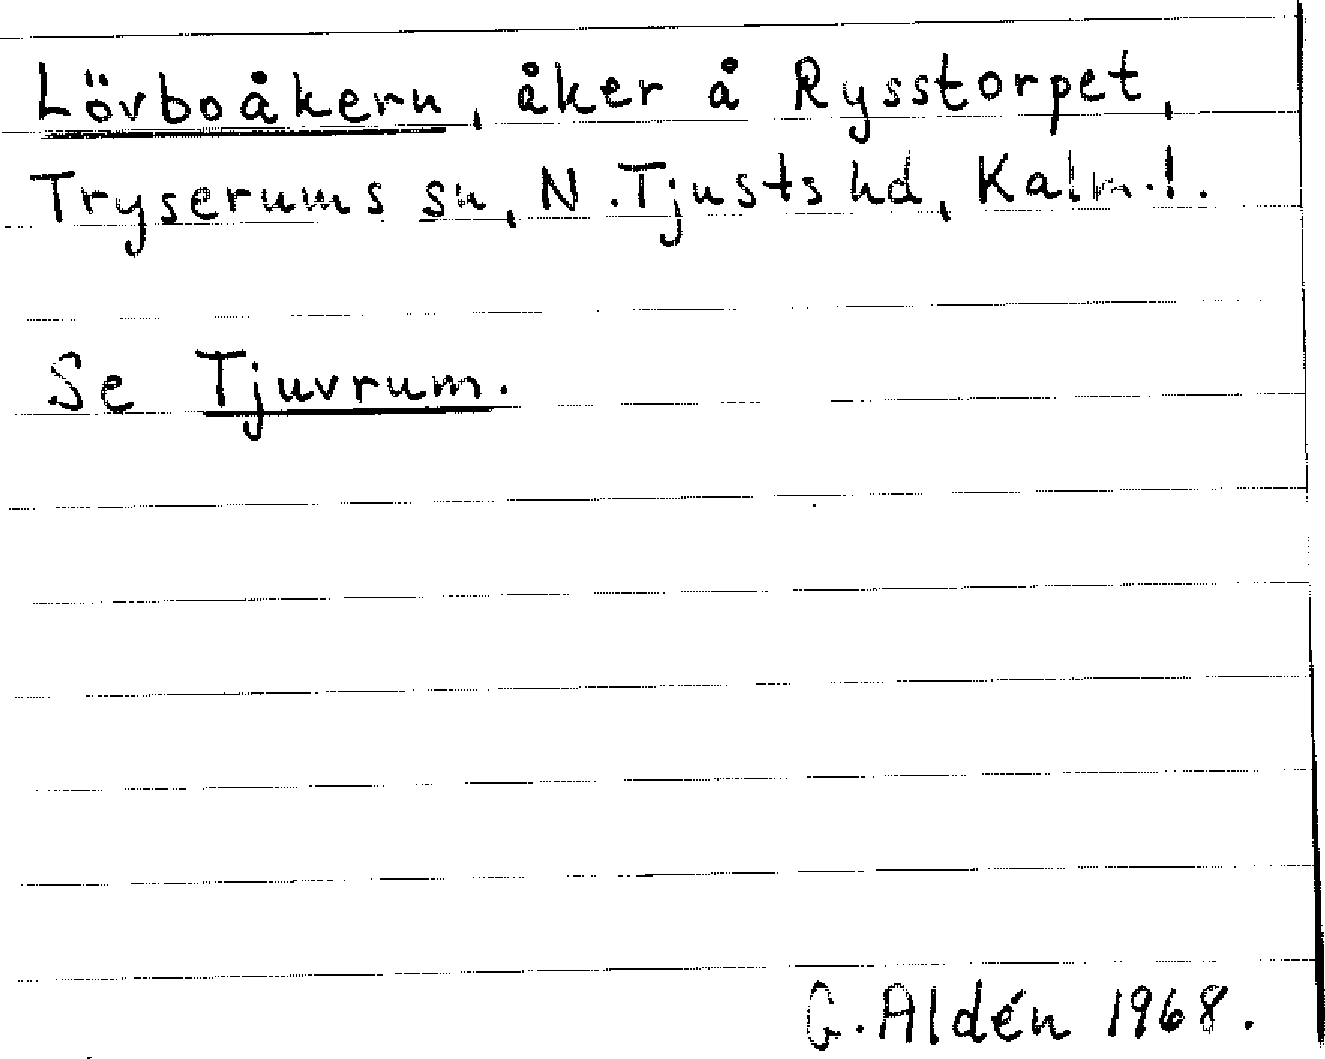 Lövboåkern, åker å Rysstorpet,
Tryserums sn, N. Tjusts hd, Kalm.l.
Se Tjuvrum.
G. Aldén 1968.